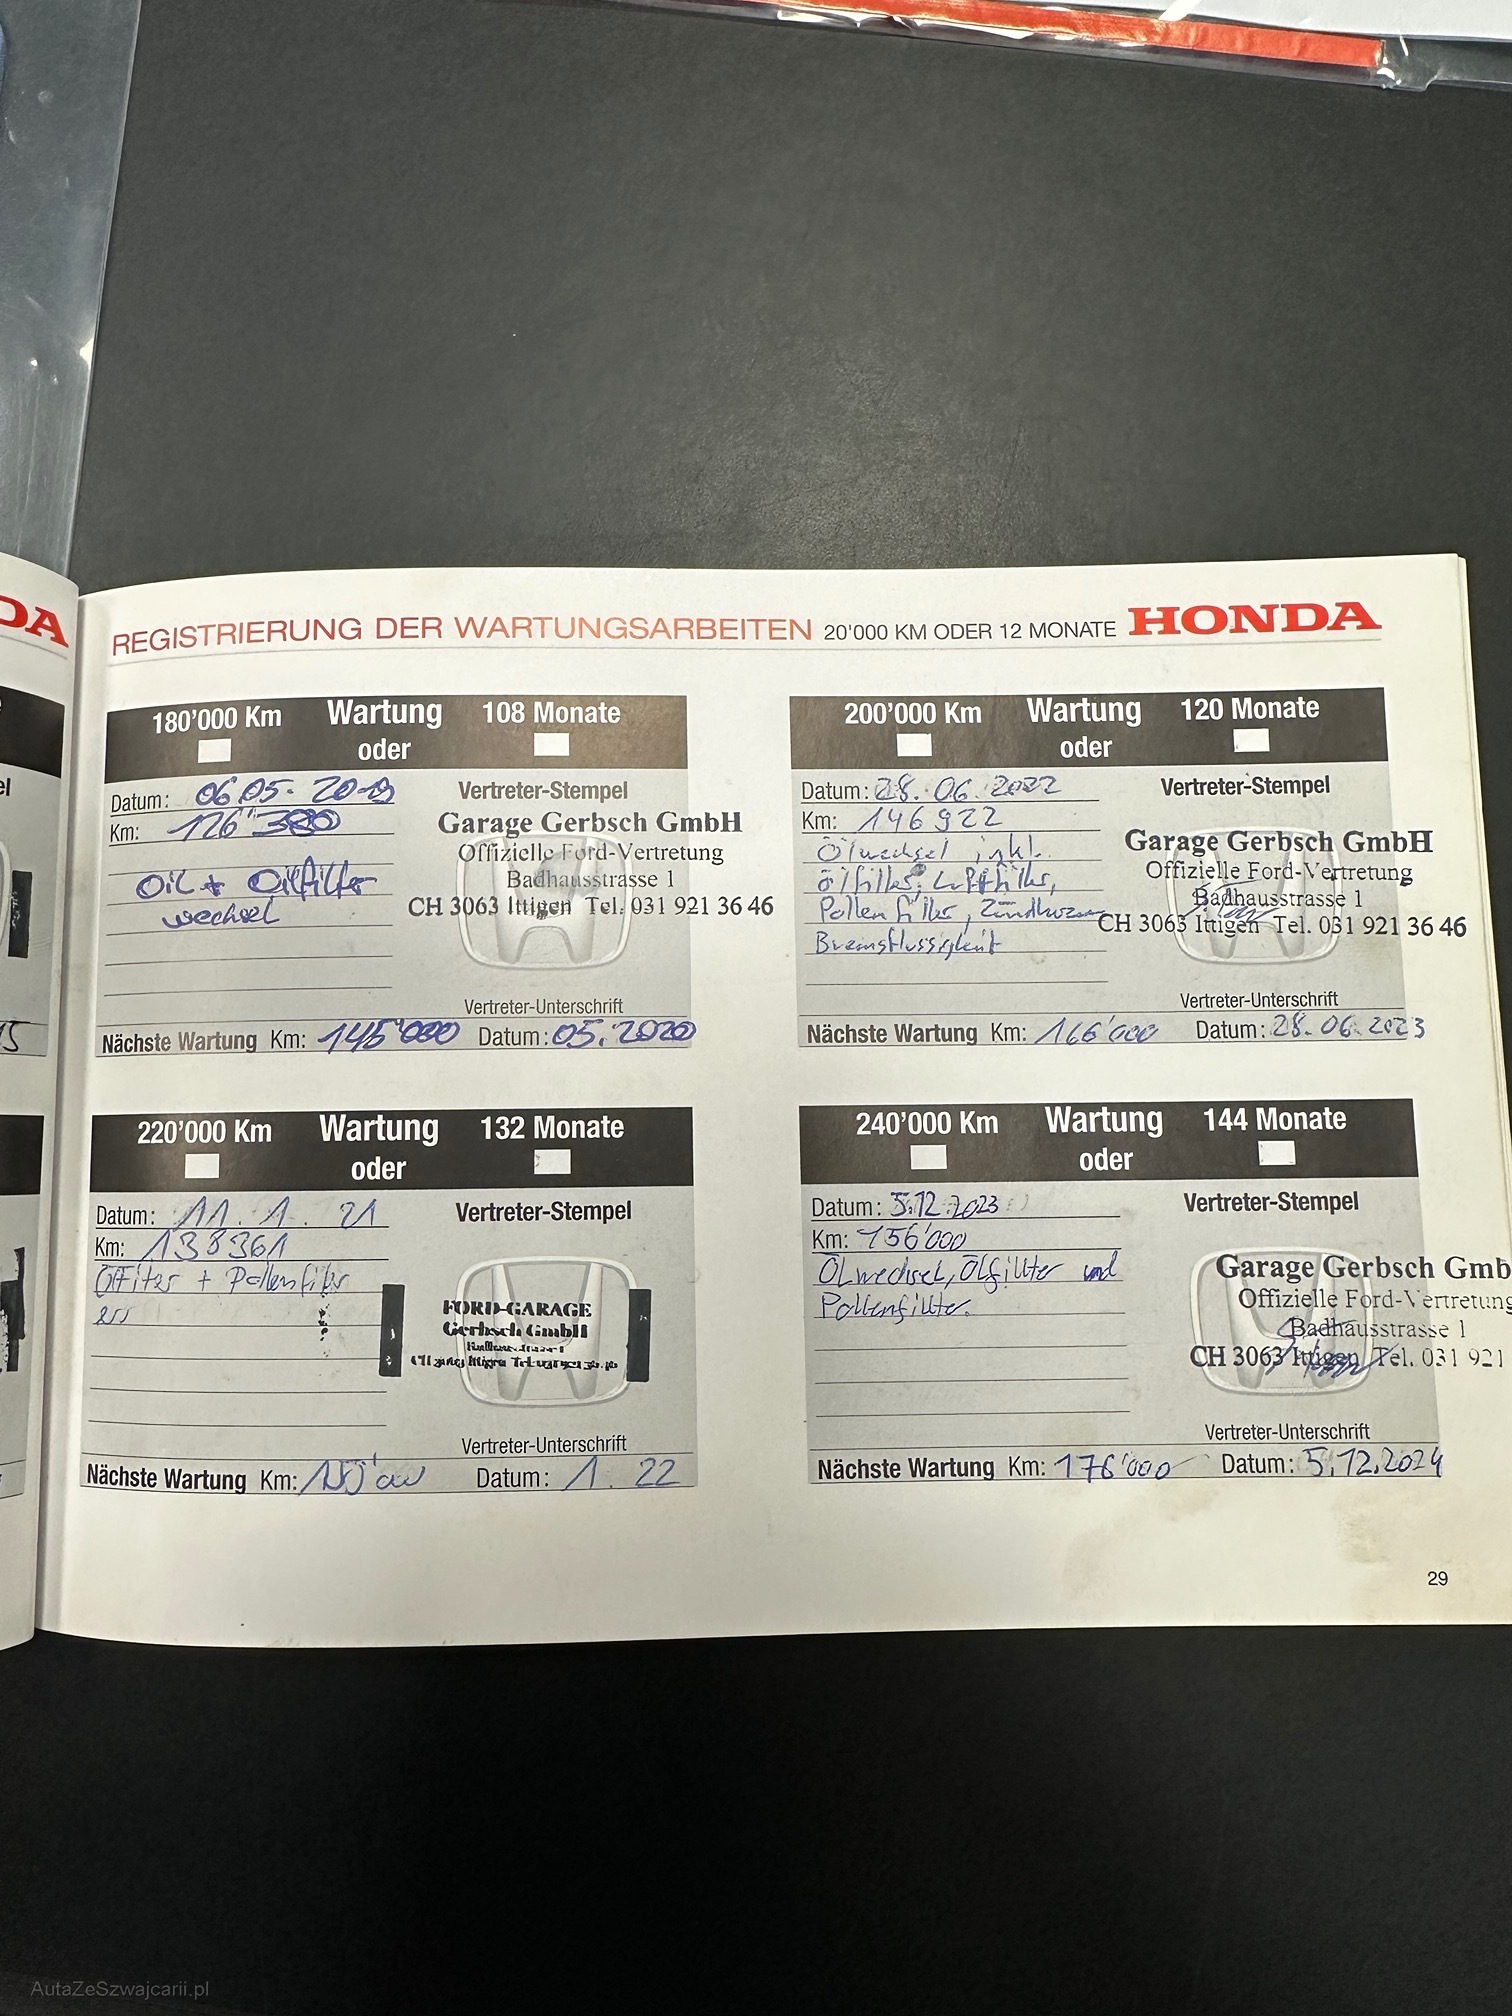 DA
REGISTRIERUNG DER WARTUNGSARBEITEN 20'000 KM ODER 12 MONATE HONDA
180'000 Km Wartung 108 Monate
oder
Datum: 06.05.2019
Vertreter-Stempel
Km: 126'380
Garage Gerbsch GmbH
Offizielle Ford-Vertretung
Oil + Oilfilter
Badhausstrasse 1
wechsel
CH 3063 Ittigen Tel. 031 921 36 46
Vertreter-Unterschrift
Nächste Wartung Km: 145'000 Datum: 05.2020
200'000 Km Wartung 120 Monate
oder
Datum: 28.06.2022
Vertreter-Stempel
Km: 146922
Garage Gerbsch GmbH
Ölwechsel inkl.
Offizielle Ford-Vertretung
Ölfilter, Luftfilter,
Badhausstrasse 1
Pollenfilter,
CH 3063 Ittigen Tel. 031 921 36 46
Bremsflüssigkeit
Vertreter-Unterschrift
Nächste Wartung Km: 166'000 Datum: 28.06.2023
220'000 Km Wartung 132 Monate
oder
Datum: 11.1.21
Vertreter-Stempel
Km: 138361
+ Pollenfilter
FORD-GARAGE
Gerbsch GmbH
Vertreter-Unterschrift
Nächste Wartung Km: Datum: 1.22
240'000 Km Wartung 144 Monate
oder
Datum: 5.12.2023
Vertreter-Stempel
Km: 156'000
Garage Gerbsch Gmb
Ölwechsel, Ölfillter und
Offizielle Ford-Vertretung
Pollenfillter.
Badhausstrasse 1
CH 3063 Ittigen Tel. 031 921
Vertreter-Unterschrift
Nächste Wartung Km: 176'000 Datum: 5.12.2024
29
AutaZeSzwajcarii.pl